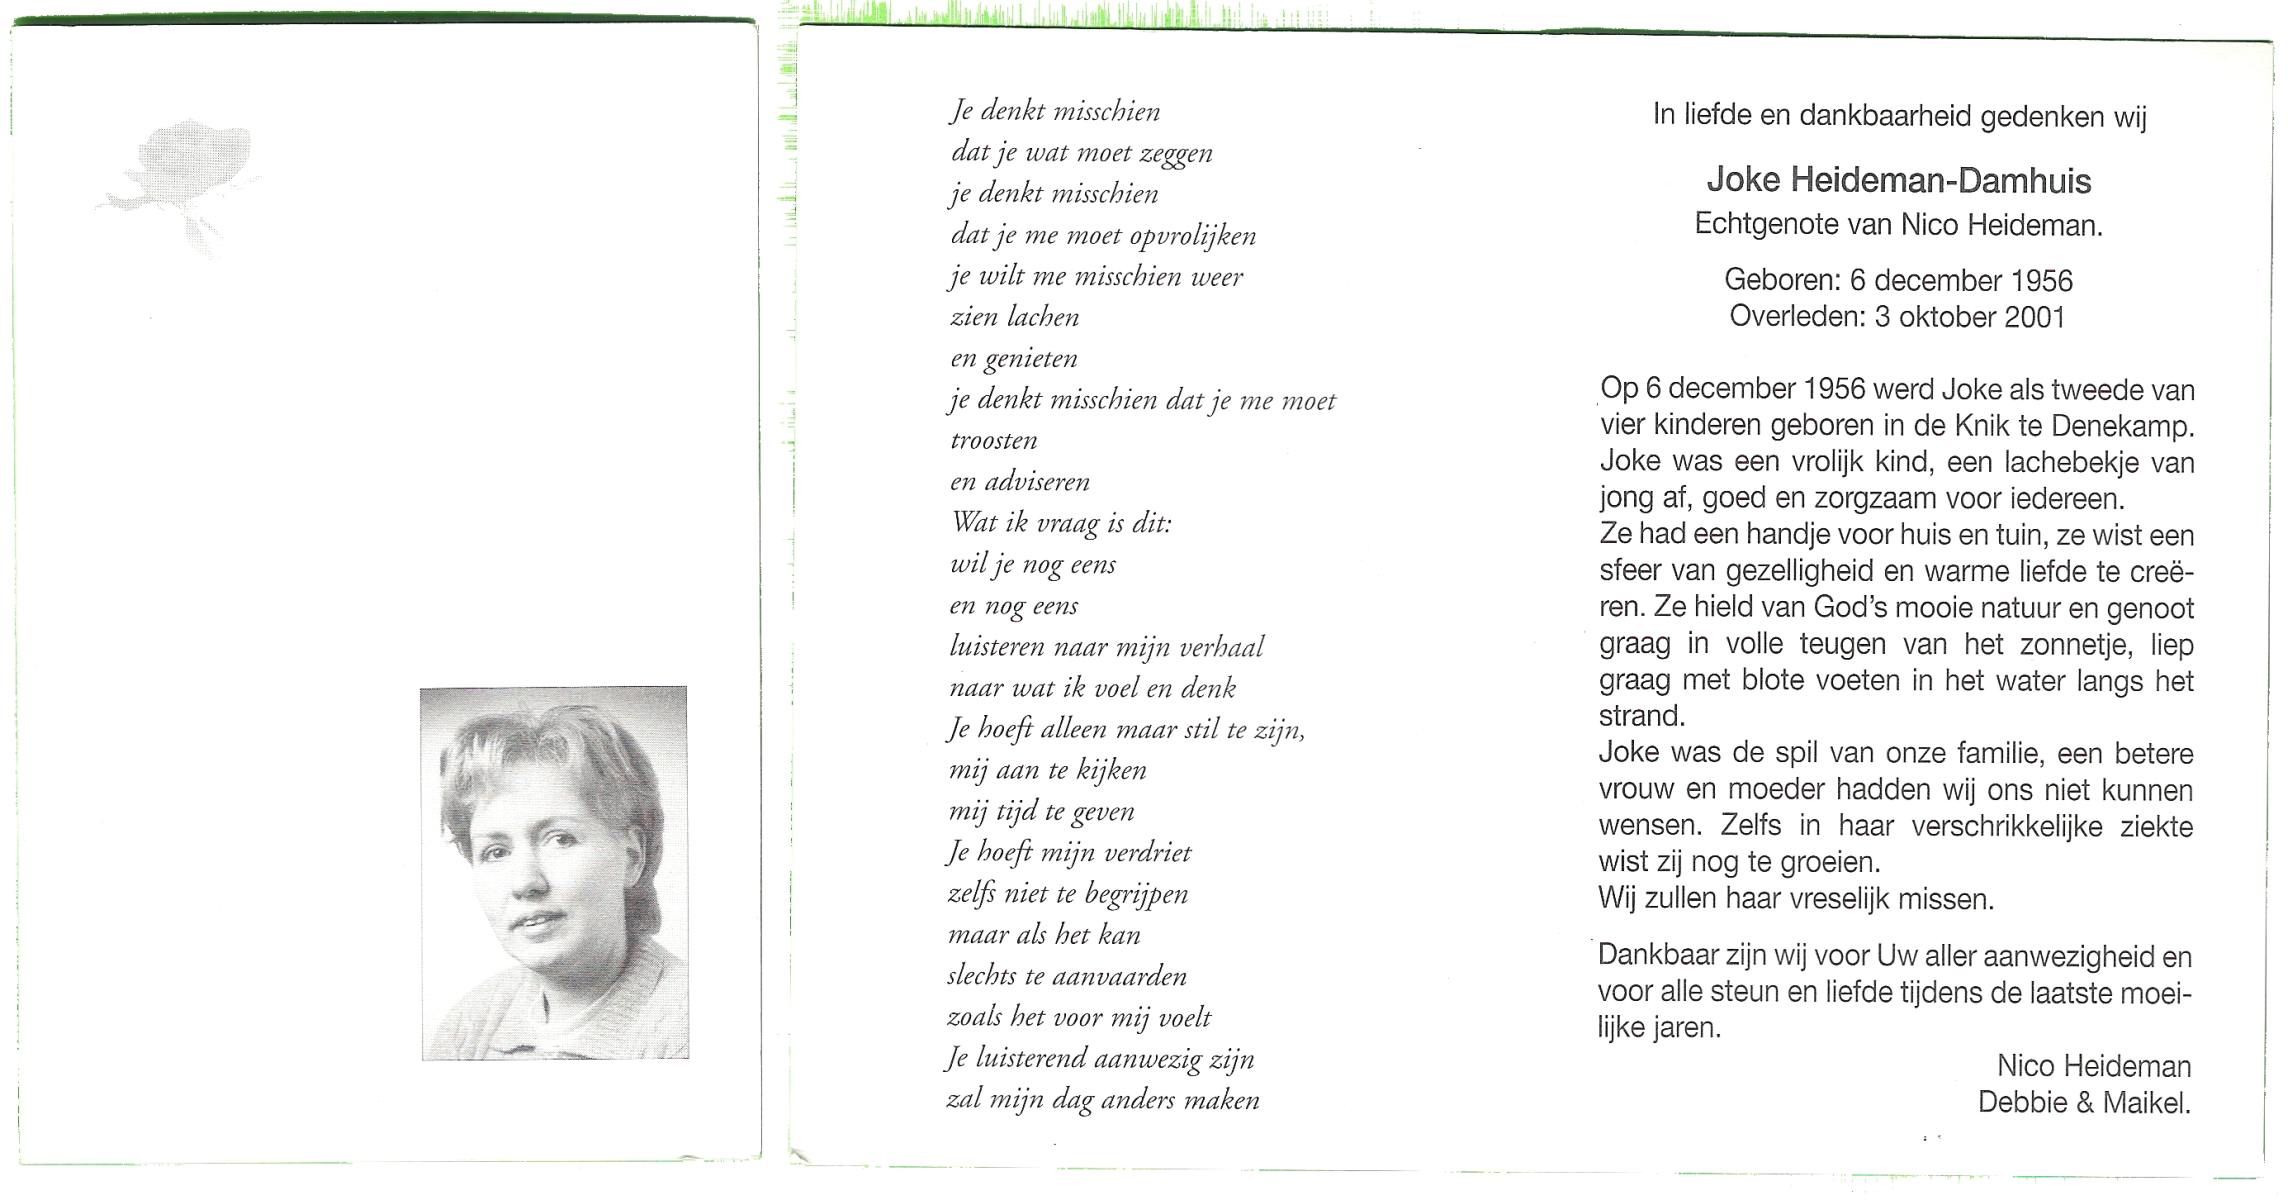 Je denkt misschien
dat je wat moet zeggen
je denkt misschien
dat je me moet opvrolijken
je wilt me misschien weer
zien lachen
en genieten
je denkt misschien dat je me moet
troosten
en adviseren
Wat ik vraag is dit:
wil je nog eens
en nog eens
luisteren naar mijn verhaal
naar wat ik voel en denk
Je hoeft alleen maar stil te zijn,
mij aan te kijken
mij tijd te geven
Je hoeft mijn verdriet
zelfs niet te begrijpen
maar als het kan
slechts te aanvaarden
zoals het voor mij voelt
Je luisterend aanwezig zijn
zal mijn dag anders maken
In liefde en dankbaarheid gedenken wij
Joke Heideman-Damhuis
Echtgenote van Nico Heideman.
Geboren: 6 december 1956
Overleden: 3 oktober 2001
Op 6 december 1956 werd Joke als tweede van
vier kinderen geboren in de Knik te Denekamp.
Joke was een vrolijk kind, een lachebekje van
jong af, goed en zorgzaam voor iedereen.
Ze had een handje voor huis en tuin, ze wist een
sfeer van gezelligheid en warme liefde te creë-
ren. Ze hield van God's mooie natuur en genoot
graag in volle teugen van het zonnetje, liep
graag met blote voeten in het water langs het
strand.
Joke was de spil van onze familie, een betere
vrouw en moeder hadden wij ons niet kunnen
wensen. Zelfs in haar verschrikkelijke ziekte
wist zij nog te groeien.
Wij zullen haar vreselijk missen.
Dankbaar zijn wij voor Uw aller aanwezigheid en
voor alle steun en liefde tijdens de laatste moei-
lijke jaren.
Nico Heideman
Debbie & Maikel.